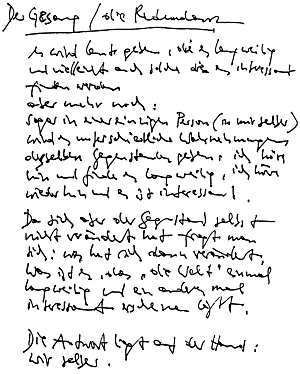 Der Gesang / die Redundanz
es wird Leute geben, die es langweilig
und vielleicht auch solche die es interessant
finden werden
aber mehr noch:
sogar in einer einzigen Person (in mir selber)
wird es unterschiedliche Wahrnehmungen
desselben Gegenstandes geben: ich höre
hin und finde es langweilig, ich höre
wieder hin und es ist interessant.
Da sich aber der Gegenstand selbst
nicht verändert hat fragt man
sich: was hat sich dann verändert,
was ist es, das "die Welt" einmal
langweilig und ein andermal
interessant erscheinen läßt.
Die Antwort liegt auf der Hand:
wir selber.